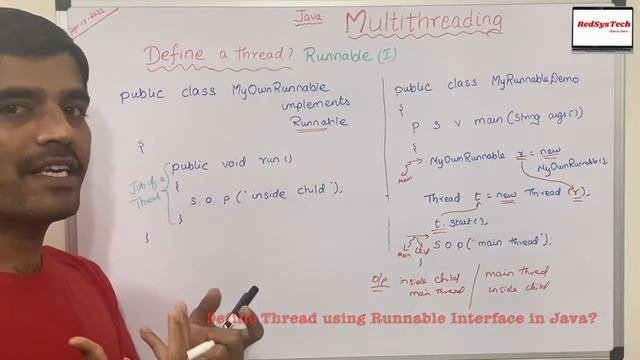 Apr-18-2021
Java
Multithreading
RedSysTech
Define a thread? Runnable (I)
public class MyOwnRunnable
implements
Runnable
{
public void run()
{
S.O.P("inside child");
}
}
Job of a
Thread
public class MyRunnableDemo
{
P S V main(String args[])
{
MyOwnRunnable r = new
MyOwnRunnable();
Main
Thread t = new Thread (r);
t.start();
S O P("main thread");
}
Main
child
O/P inside child
main thread
main thread
inside child
Define Thread using Runnable Interface in Java?